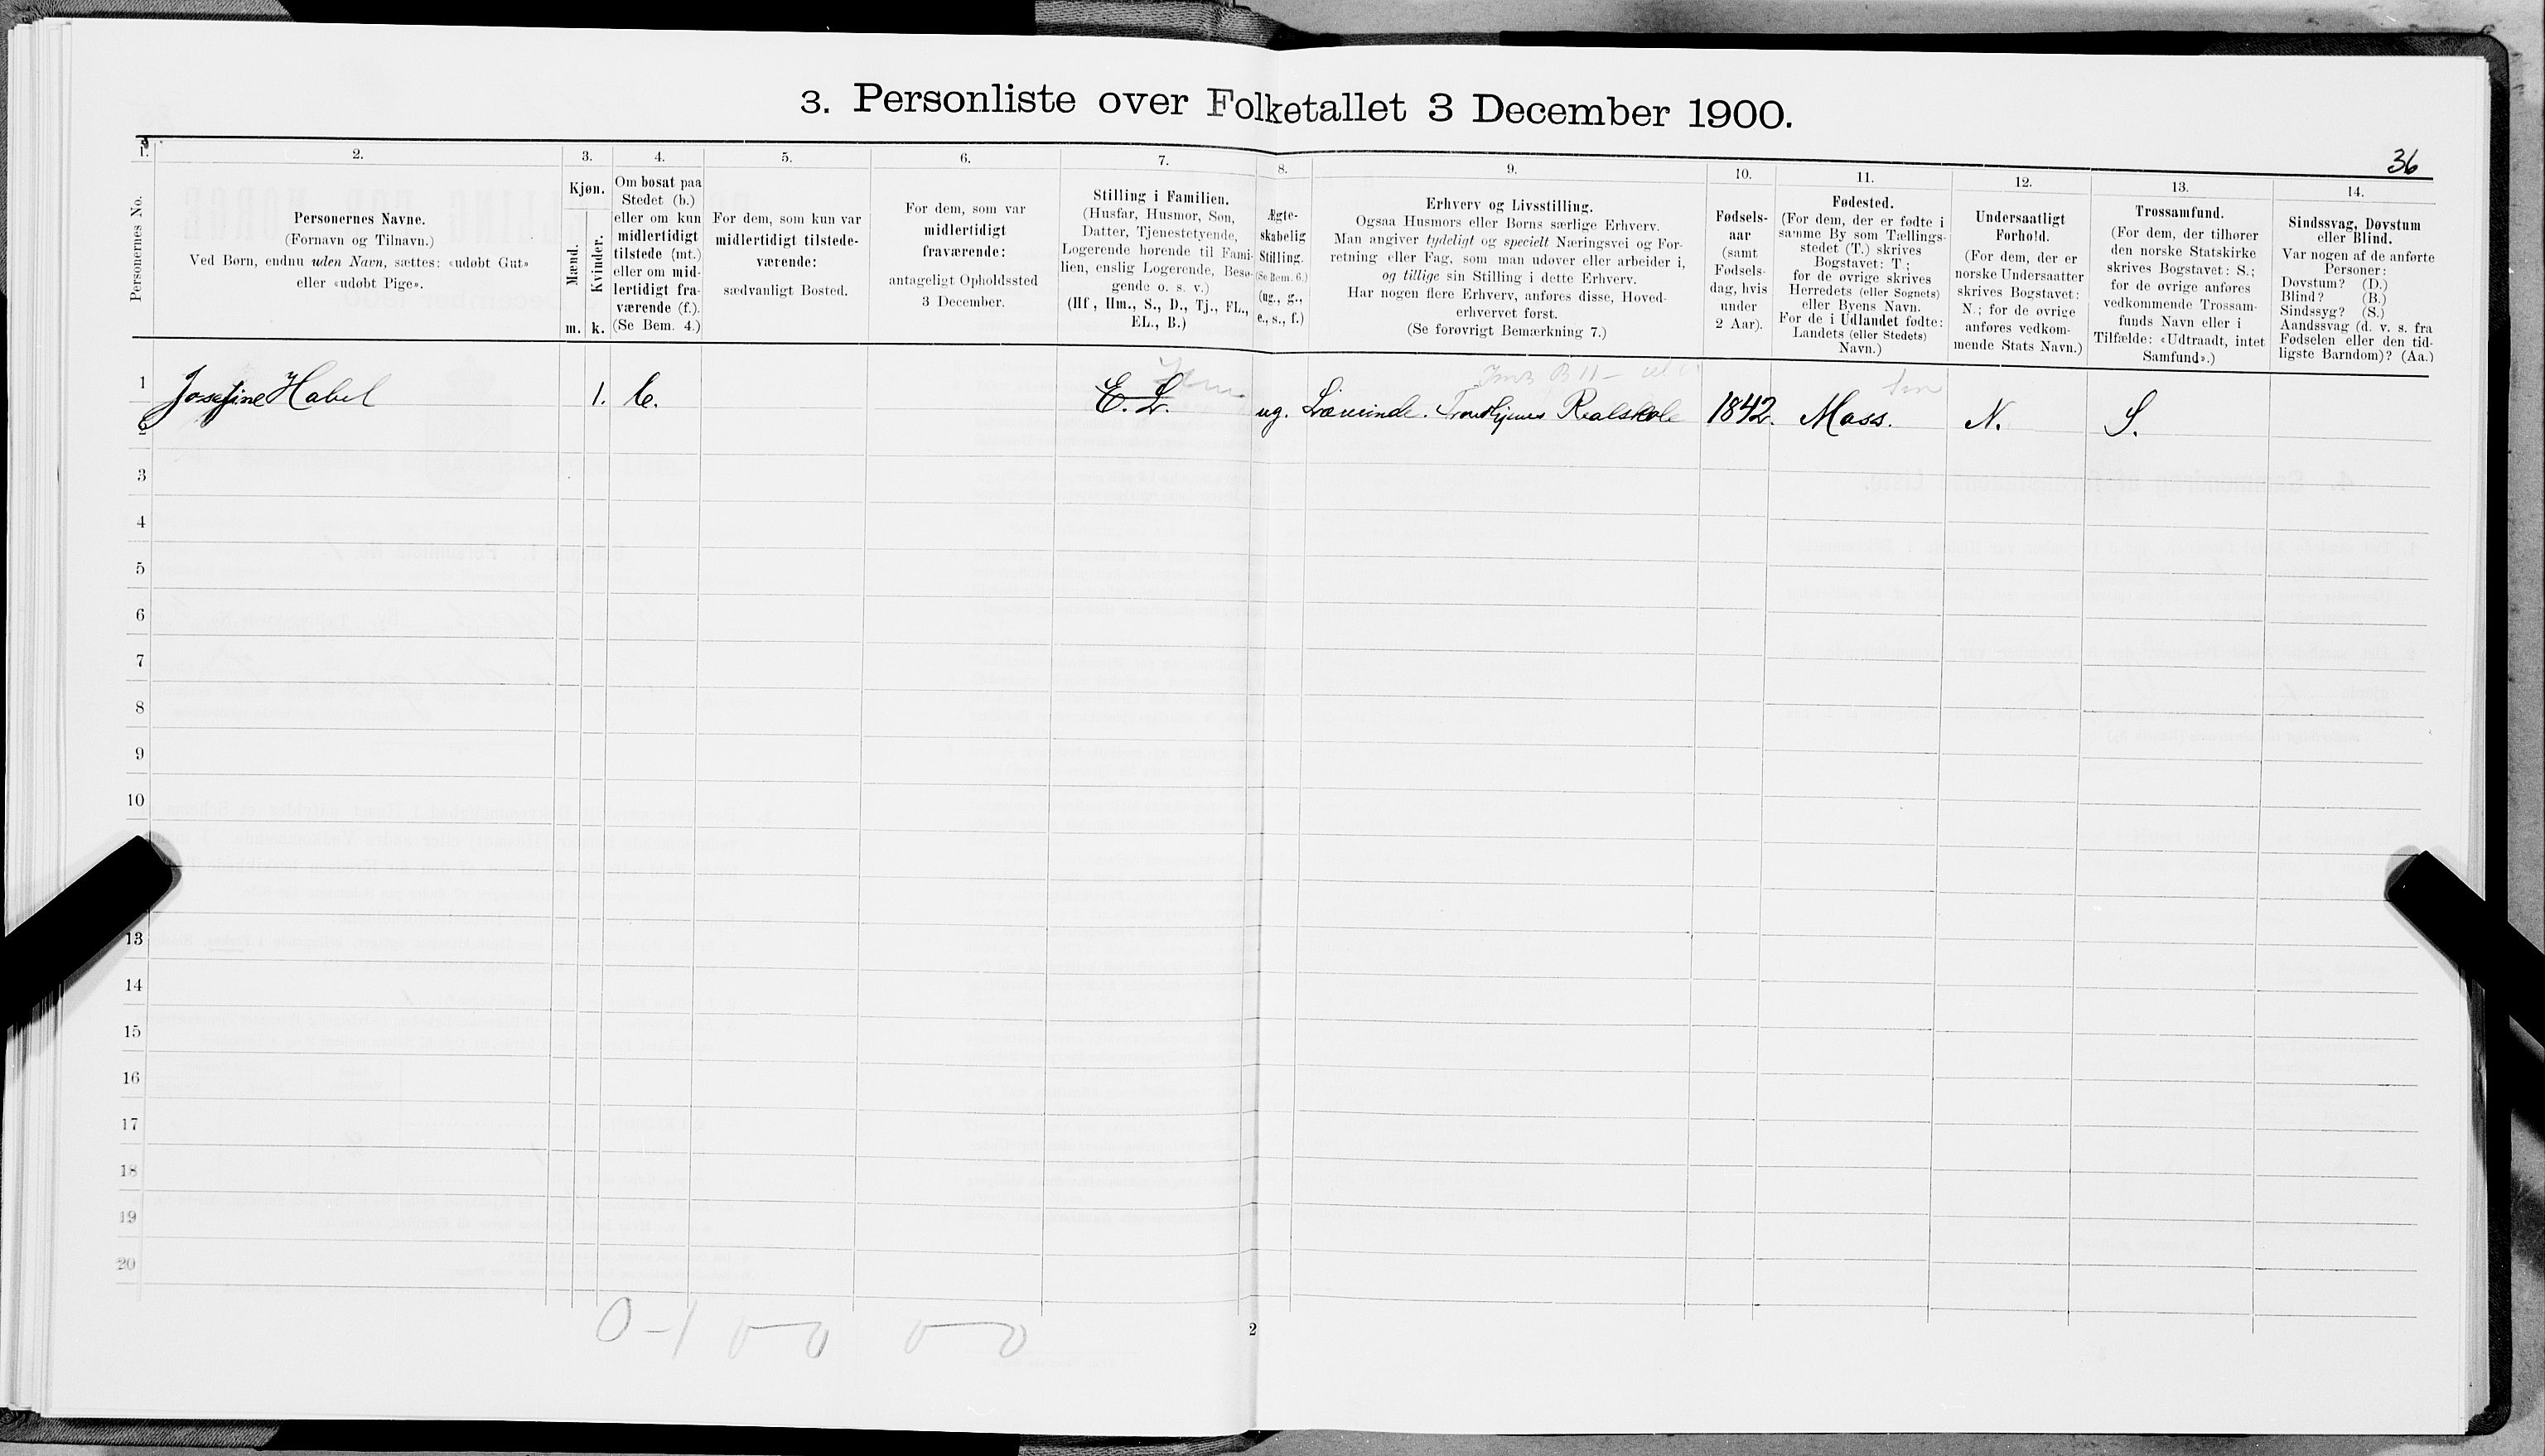 3. Personliste over Folketallet 3 December 1900.
36
1.
2.
3.
4.
5.
6.
7.
8.
9.
10.
11.
12.
13.
14.
Personernes No.
Personernes Navne.
(Fornavn og Tilnavn.)
Ved Børn, endnu uden Navn, sættes: «udøbt Gut»
eller «udøbt Pige».
Kjøn.
Mænd.
Kvinder.
m.
k.
Om bosat paa
Stedet (b.)
eller om kun
midlertidigt
tilstede (mt.)
eller om mid-
lertidigt fra-
værende (f.).
(Se Bem. 4.)
For dem, som kun var
midlertidigt tilstede-
værende:
sædvanligt Bosted.
For dem, som var
midlertidigt
fraværende:
antageligt Opholdssted
3 December.
Stilling i Familien.
(Husfar, Husmor, Søn,
Datter, Tjenestetyende,
Logerende hørende til Fami-
lien, enslig Logerende, Besø-
gende o. s. v.)
(Hf, Hm., S., D., Tj., FL.,
EL., B.)
Ægte-
skabelig
Stilling.
(Se Bem. 6.)
(ug., g.,
e., s., f.)
Erhverv og Livsstilling.
Ogsaa Husmors eller Børns særlige Erhverv.
Man angiver tydeligt og specielt Næringsvei og For-
retning eller Fag, som man udøver eller arbeider i,
og tillige sin Stilling i dette Erhverv.
Har nogen flere Erhverv, anføres disse, Hoved-
erhvervet først.
(Se forøvrigt Bemærkning 7.)
Fødsels-
aar
(samt
Fødsels-
dag, hvis
under
2 Aar).
Fødested.
(For dem, der er fødte i
samme By som Tællings-
stedet (T.) skrives
Bogstavet: T;
for de øvrige skrives
Herredets (eller Sognets)
eller Byens Navn.
For de i Udlandet fødte:
Landets (eller Stedets)
Navn.)
Undersaatligt
Forhold.
(For dem, der er
norske Undersaatter
skrives Bogstavet:
N.; for de øvrige
anføres vedkom-
mende Stats Navn.)
Trossamfund.
(For dem, der tilhører
den norske Statskirke
skrives Bogstavet: S.;
for de øvrige anføres
vedkommende Trossam-
funds Navn eller i
Tilfælde: «Udtraadt, intet
Samfund».)
Sindssvag, Døvstum
eller Blind.
Var nogen af de anførte
Personer:
Døvstum? (D.)
Blind? (B.)
Sindssyg? (S.)
Aandssvag (d. v. s. fra
Fødselen eller den tid-
ligste Barndom)? (Aa.)
1 Josefine Habel 1. b. E. L. ug. Lærerinde. Trondhjems Realskole 1842. Moss. N. S.
2
3
4
5
6
7
8
9
10
13
14
15
16
17
18
19
20
0-1 0-0 0-0
2